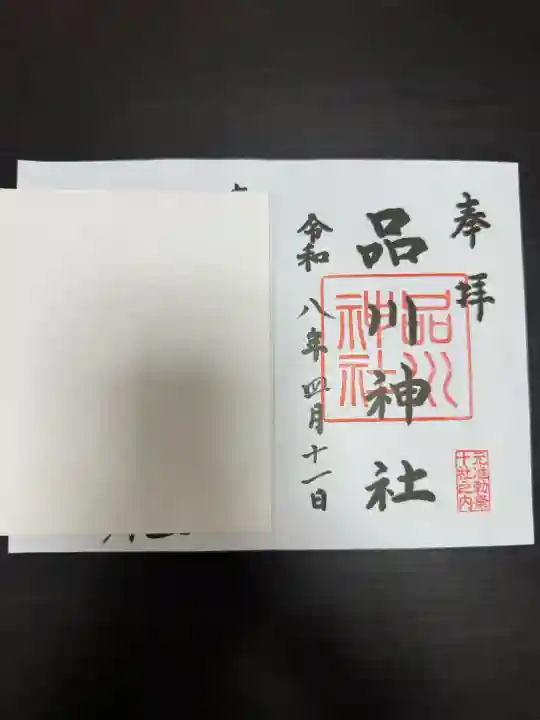 奉拝
品川神社
品川神社
元准勅祭
十社之内
令和八年四月十一日